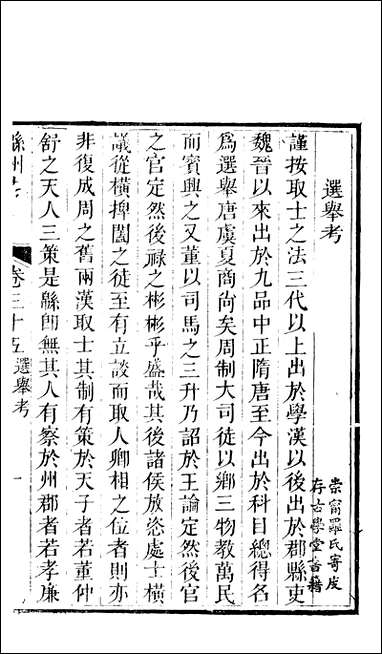 選舉考
崇寗羅氏寄度
存古學堂書籍
謹按取士之法三代以上出於學漢以後出於郡縣吏
魏晉以來出於九品中正隋唐至今出於科目總得名
爲選舉唐虞夏商尚矣周制大司徒以鄉三物教萬民
而賓興之又董以司馬之三升乃詔於王論定然後官
之官定然後祿之彬彬乎盛哉其後諸侯放恣處士橫
議從橫捭闔之徒至有立談而取人卿相之位者則亦
非復成周之舊兩漢取士其制有策於天子者若董仲
舒之天人三策是緜卽無其人有察於州郡者若孝廉
緜州志 卷三十五 選舉考 一